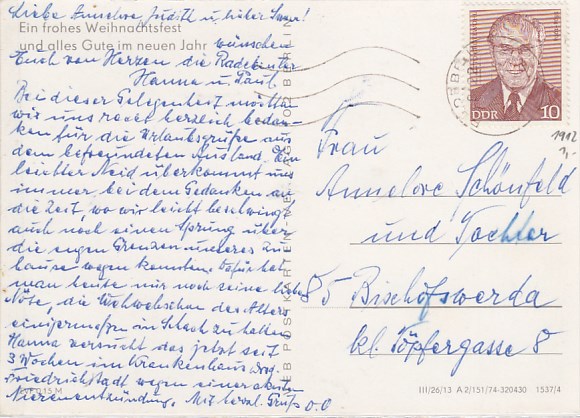 Liebe Annelore, Judith u. lieber Sever!
Ein frohes Weihnachtsfest
und alles Gute im neuen Jahr
wünschen
Euch von Herzen die Radebeuler
Hanna u. Paul.
Bei dieser Gelegenheit möchten
wir uns recht herzlich bedan-
ken für die Urlaubsgrüße aus
dem befreundeten Ausland. Ein
leichter Neid überkommt uns
immer bei dem Gedanken an
die Zeit, wo wir leicht beschwingt
auch noch einen Sprung über
die engen Grenzen unseres Zu-
hause wagen konnten. Dafür hat
man heute nur noch seine liebe
Nöte, die Wehwehchen des Alters
einigermaßen in Schach zu halten.
Hanna versucht das jetzt seit
3 Wochen im Krankenhaus
Friedrichstadt wegen einer akuten
Nierenentzündung. Mit herzl. Gruß
D.O.
EVP 0,15 M
DDR
10
1912
1,-
Frau
Annelore Schönfeld
und Tochter
85 Bischofswerda
kl. Töpfergasse 8
III/26/13 A 2/151/74-320430 1537/4